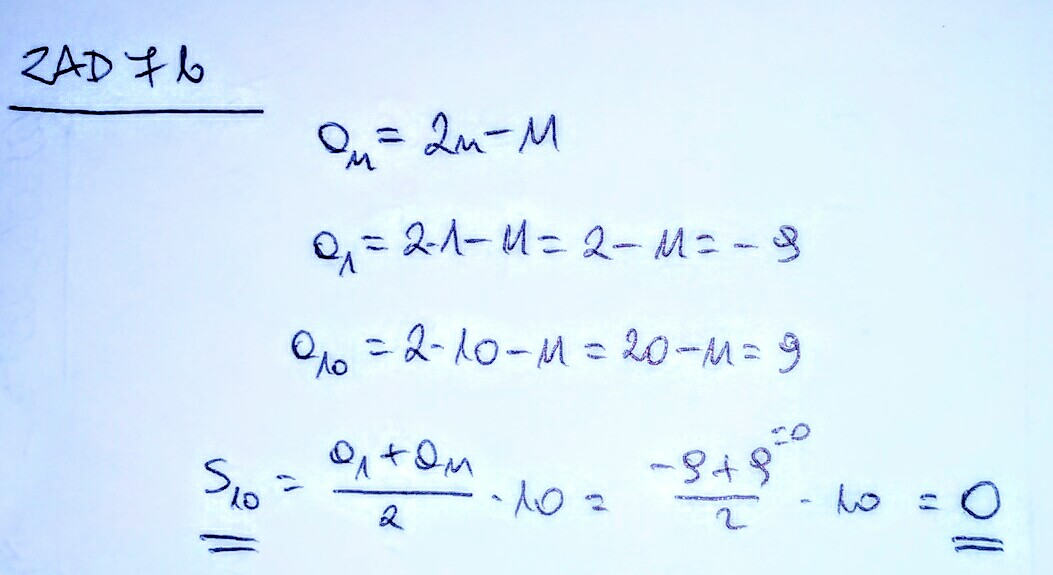 ZAD 7b
aₙ = 2n - 11
a₁ = 2·1 - 11 = 2 - 11 = - 9
a₁₀ = 2·10 - 11 = 20 - 11 = 9
S₁₀ = (a₁ + aₙ)/2 · 10 = (-9+9)/2 ⁼⁰ · 10 = 0